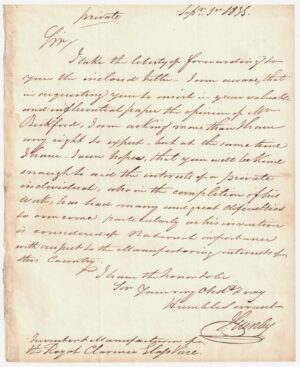 private Sepr. 3rd 1835.
Sir/
I take the liberty of forwarding to
you the inclosed letter - I am aware, that
in requesting you to insert in your valuable
and influential paper the opinion of Mr
Beckford, I am asking more than I have
any right to expect - but at the same time
I have - I am hopes, that you will be kind
enough to aid the interests of a private
individual, who in the completion of his
Work, has had many and great difficulties
to overcome particularly as his invention
is considered of National importance
with respect to the Manufacturing interest of
this Country.
I have the Honor to be
Sir Your very Obedt. &
Humble servant
Inventor & Manufacturer of
the Royal Clarence